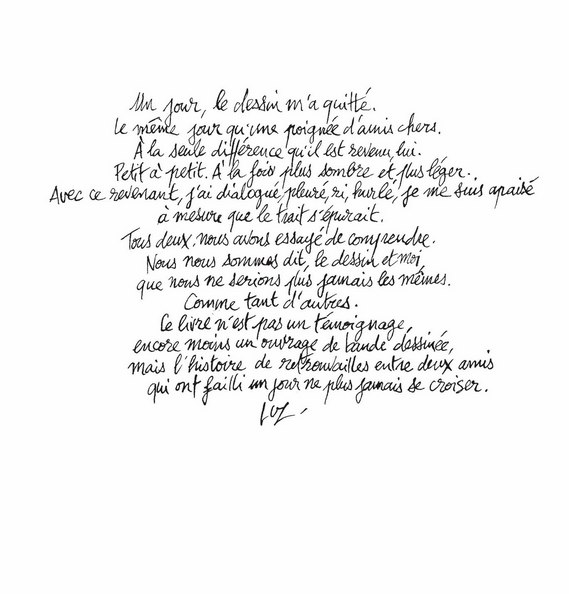 Un jour, le dessin m'a quitté.
Le même jour qu'une poignée d'amis chers.
À la seule différence qu'il est revenu, lui.
Petit à petit. À la fois plus sombre et plus léger.
Avec ce revenant, j'ai dialogué, pleuré, ri, hurlé, je me suis apaisé
à mesure que le trait s'épurait.
Tous deux, nous avons essayé de comprendre.
Nous nous sommes dit, le dessin et moi,
que nous ne serions plus jamais les mêmes.
Comme tant d'autres.
Ce livre n'est pas un témoignage,
encore moins un ouvrage de bande dessinée,
mais l'histoire de retrouvailles entre deux amis
qui ont failli un jour ne plus jamais se croiser.
Luz.